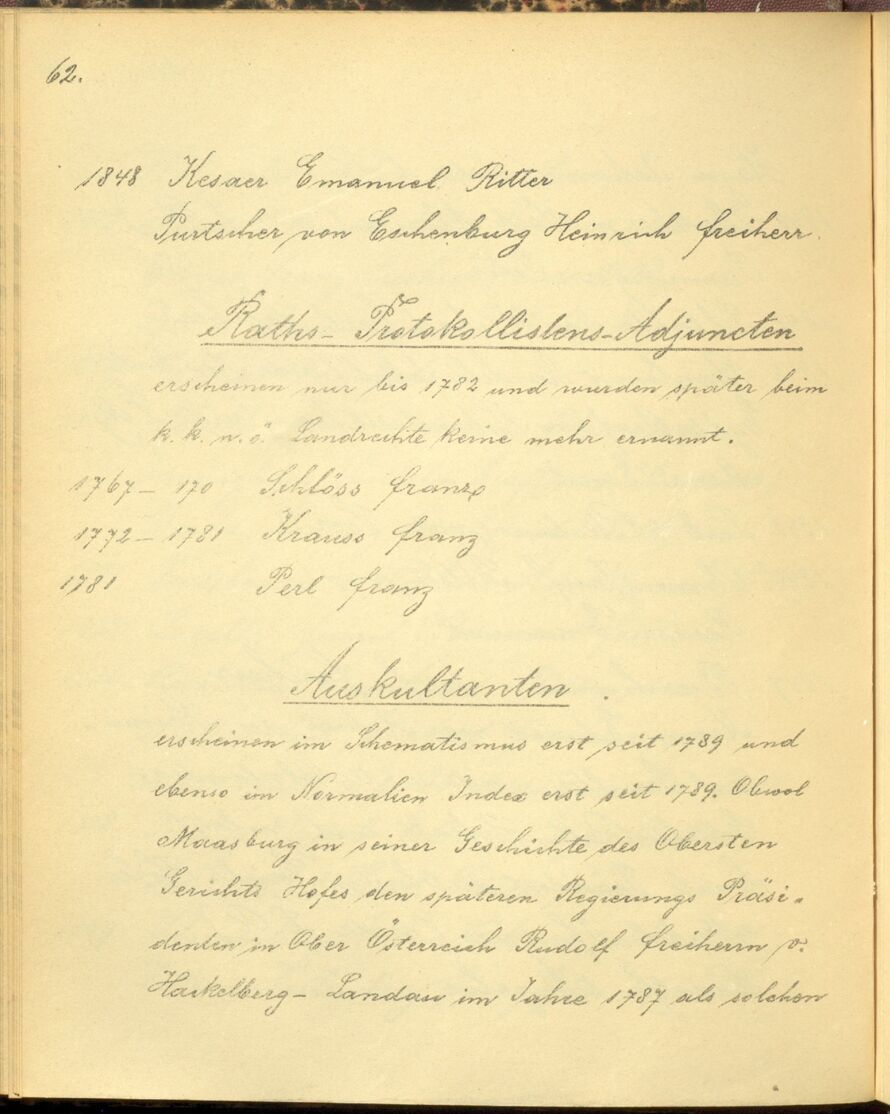 62.
1848 Kesaer Emanuel Ritter
Purtscher von Eschenburg Heinrich freiherr.
Raths-Protokollistens-Adjuncten
erscheinen nur bis 1782 und wurden später beim
k. k. n. ö. Landrechte keine mehr ernannt.
1767 - 170 Schlöss franz
1772 - 1781 Krauss franz
1781 Perl franz
Auskultanten.
erscheinen im Schematismus erst seit 1789 und
ebenso im Normalien Index erst seit 1789. Obwol
Maasburg in seiner Geschichte des Obersten
Gerichts Hofes den späteren Regierungs Präsi-
denten in Ober Österreich Rudolf freiherrn v.
Hackelberg-Landau im Jahre 1787 als solchen